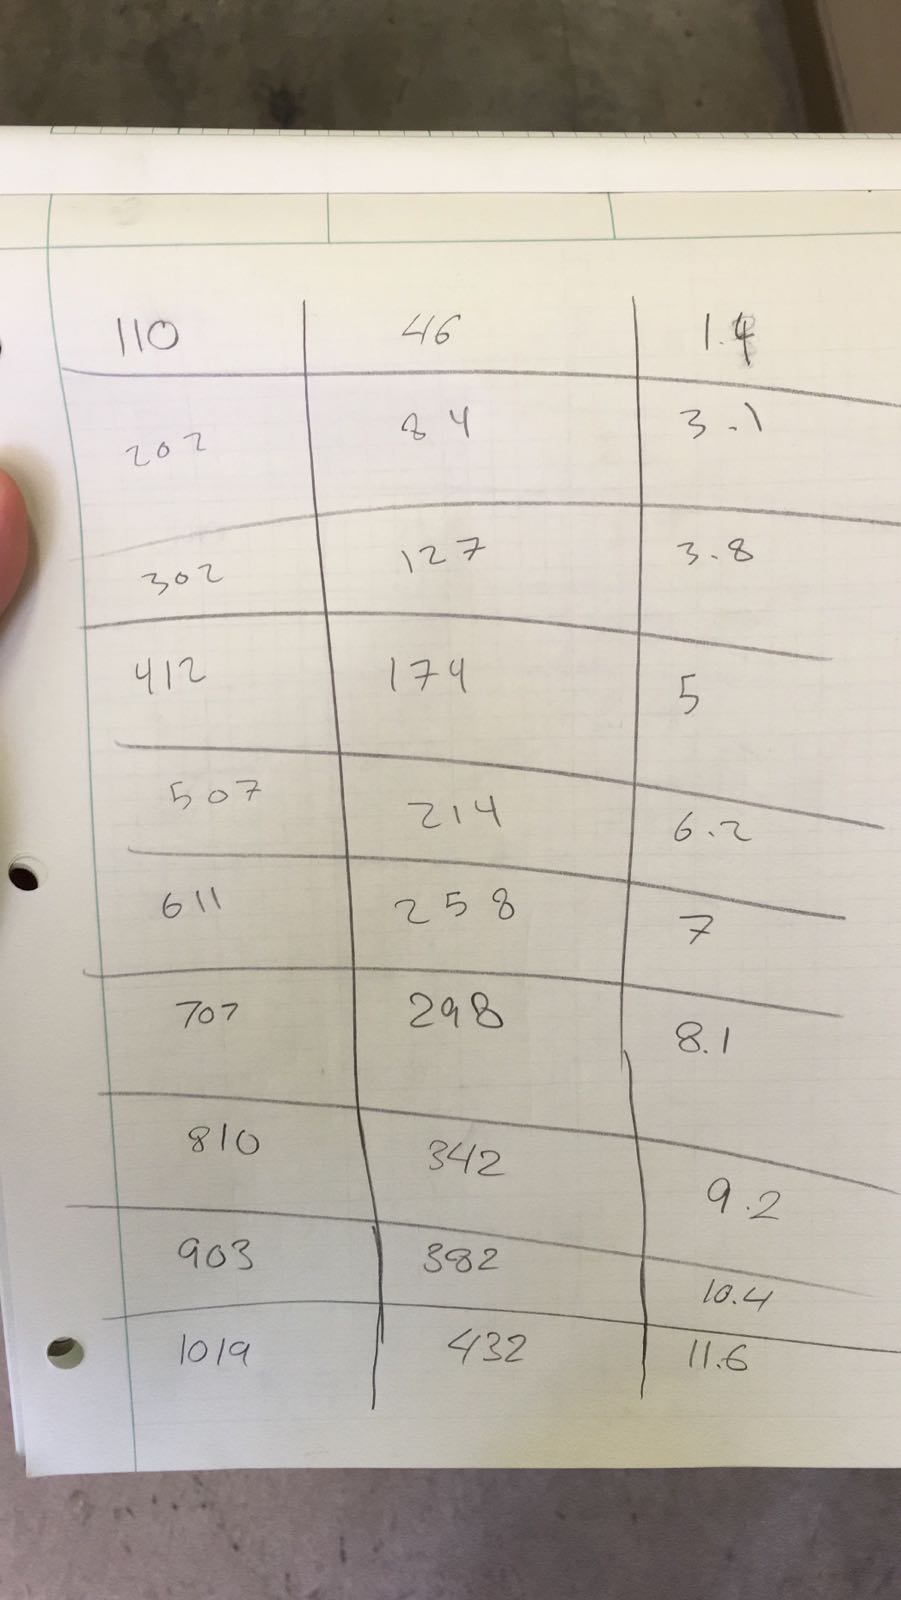 110 46 1.4
202 84 3.1
302 127 3.8
412 174 5
507 214 6.2
611 258 7
707 298 8.1
810 342 9.2
903 382 10.4
1019 432 11.6